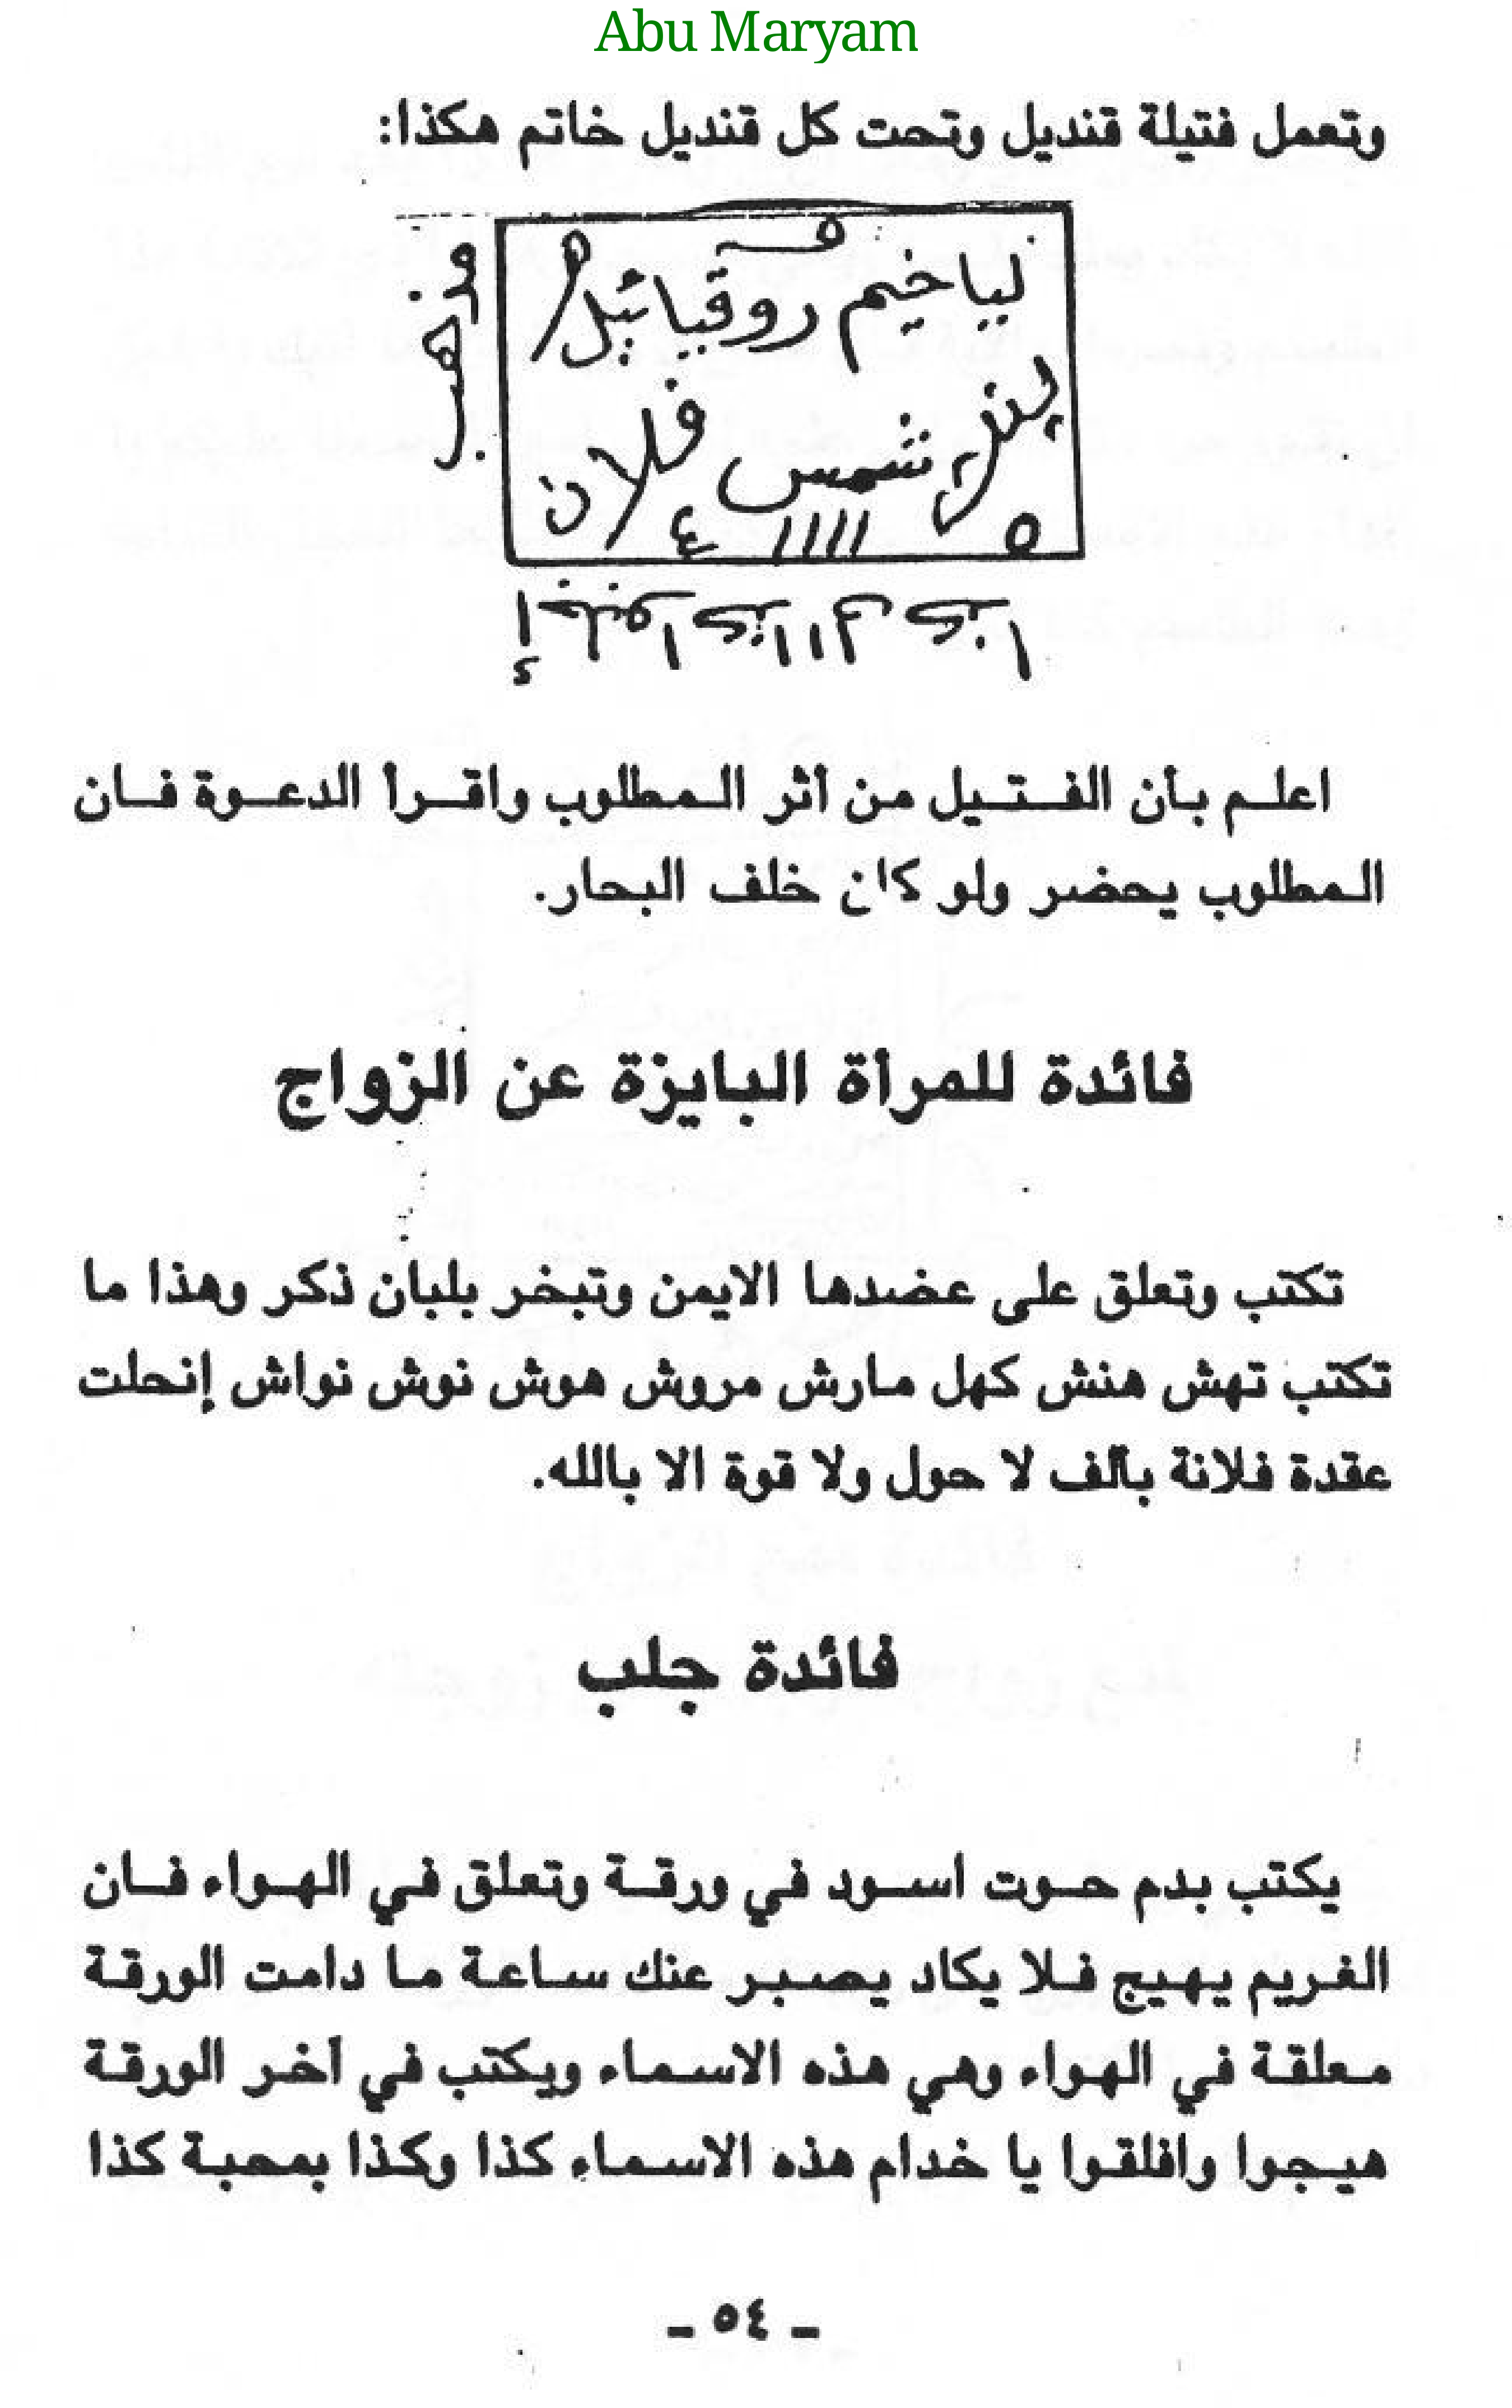 Abu Maryam
وتعمل فتيلة قنديل وتحت كل قنديل خاتم هكذا:
لياخيم روقيائيل
شمس فلان
٥ ١١١١ ٤
مذهب
اعلم بأن الفتيل من أثر المطلوب واقرأ الدعوة فان
المطلوب يحضر ولو كان خلف البحار.
فائدة للمرأة البايزة عن الزواج
تكتب وتعلق على عضدها الايمن وتبخر بلبان ذكر وهذا ما
تكتب تهش هنش كهل مارش مروش هوش نوش نواش إنحلت
عقدة فلانة بألف لا حول ولا قوة الا بالله.
فائدة جلب
يكتب بدم حوت اسود في ورقة وتعلق في الهواء فان
الغريم يهيج فلا يكاد يصبر عنك ساعة ما دامت الورقة
معلقة في الهواء وهي هذه الاسماء ويكتب في آخر الورقة
هيجوا واقلقوا يا خدام هذه الاسماء كذا وكذا بمحبة كذا
- ٥٤ -